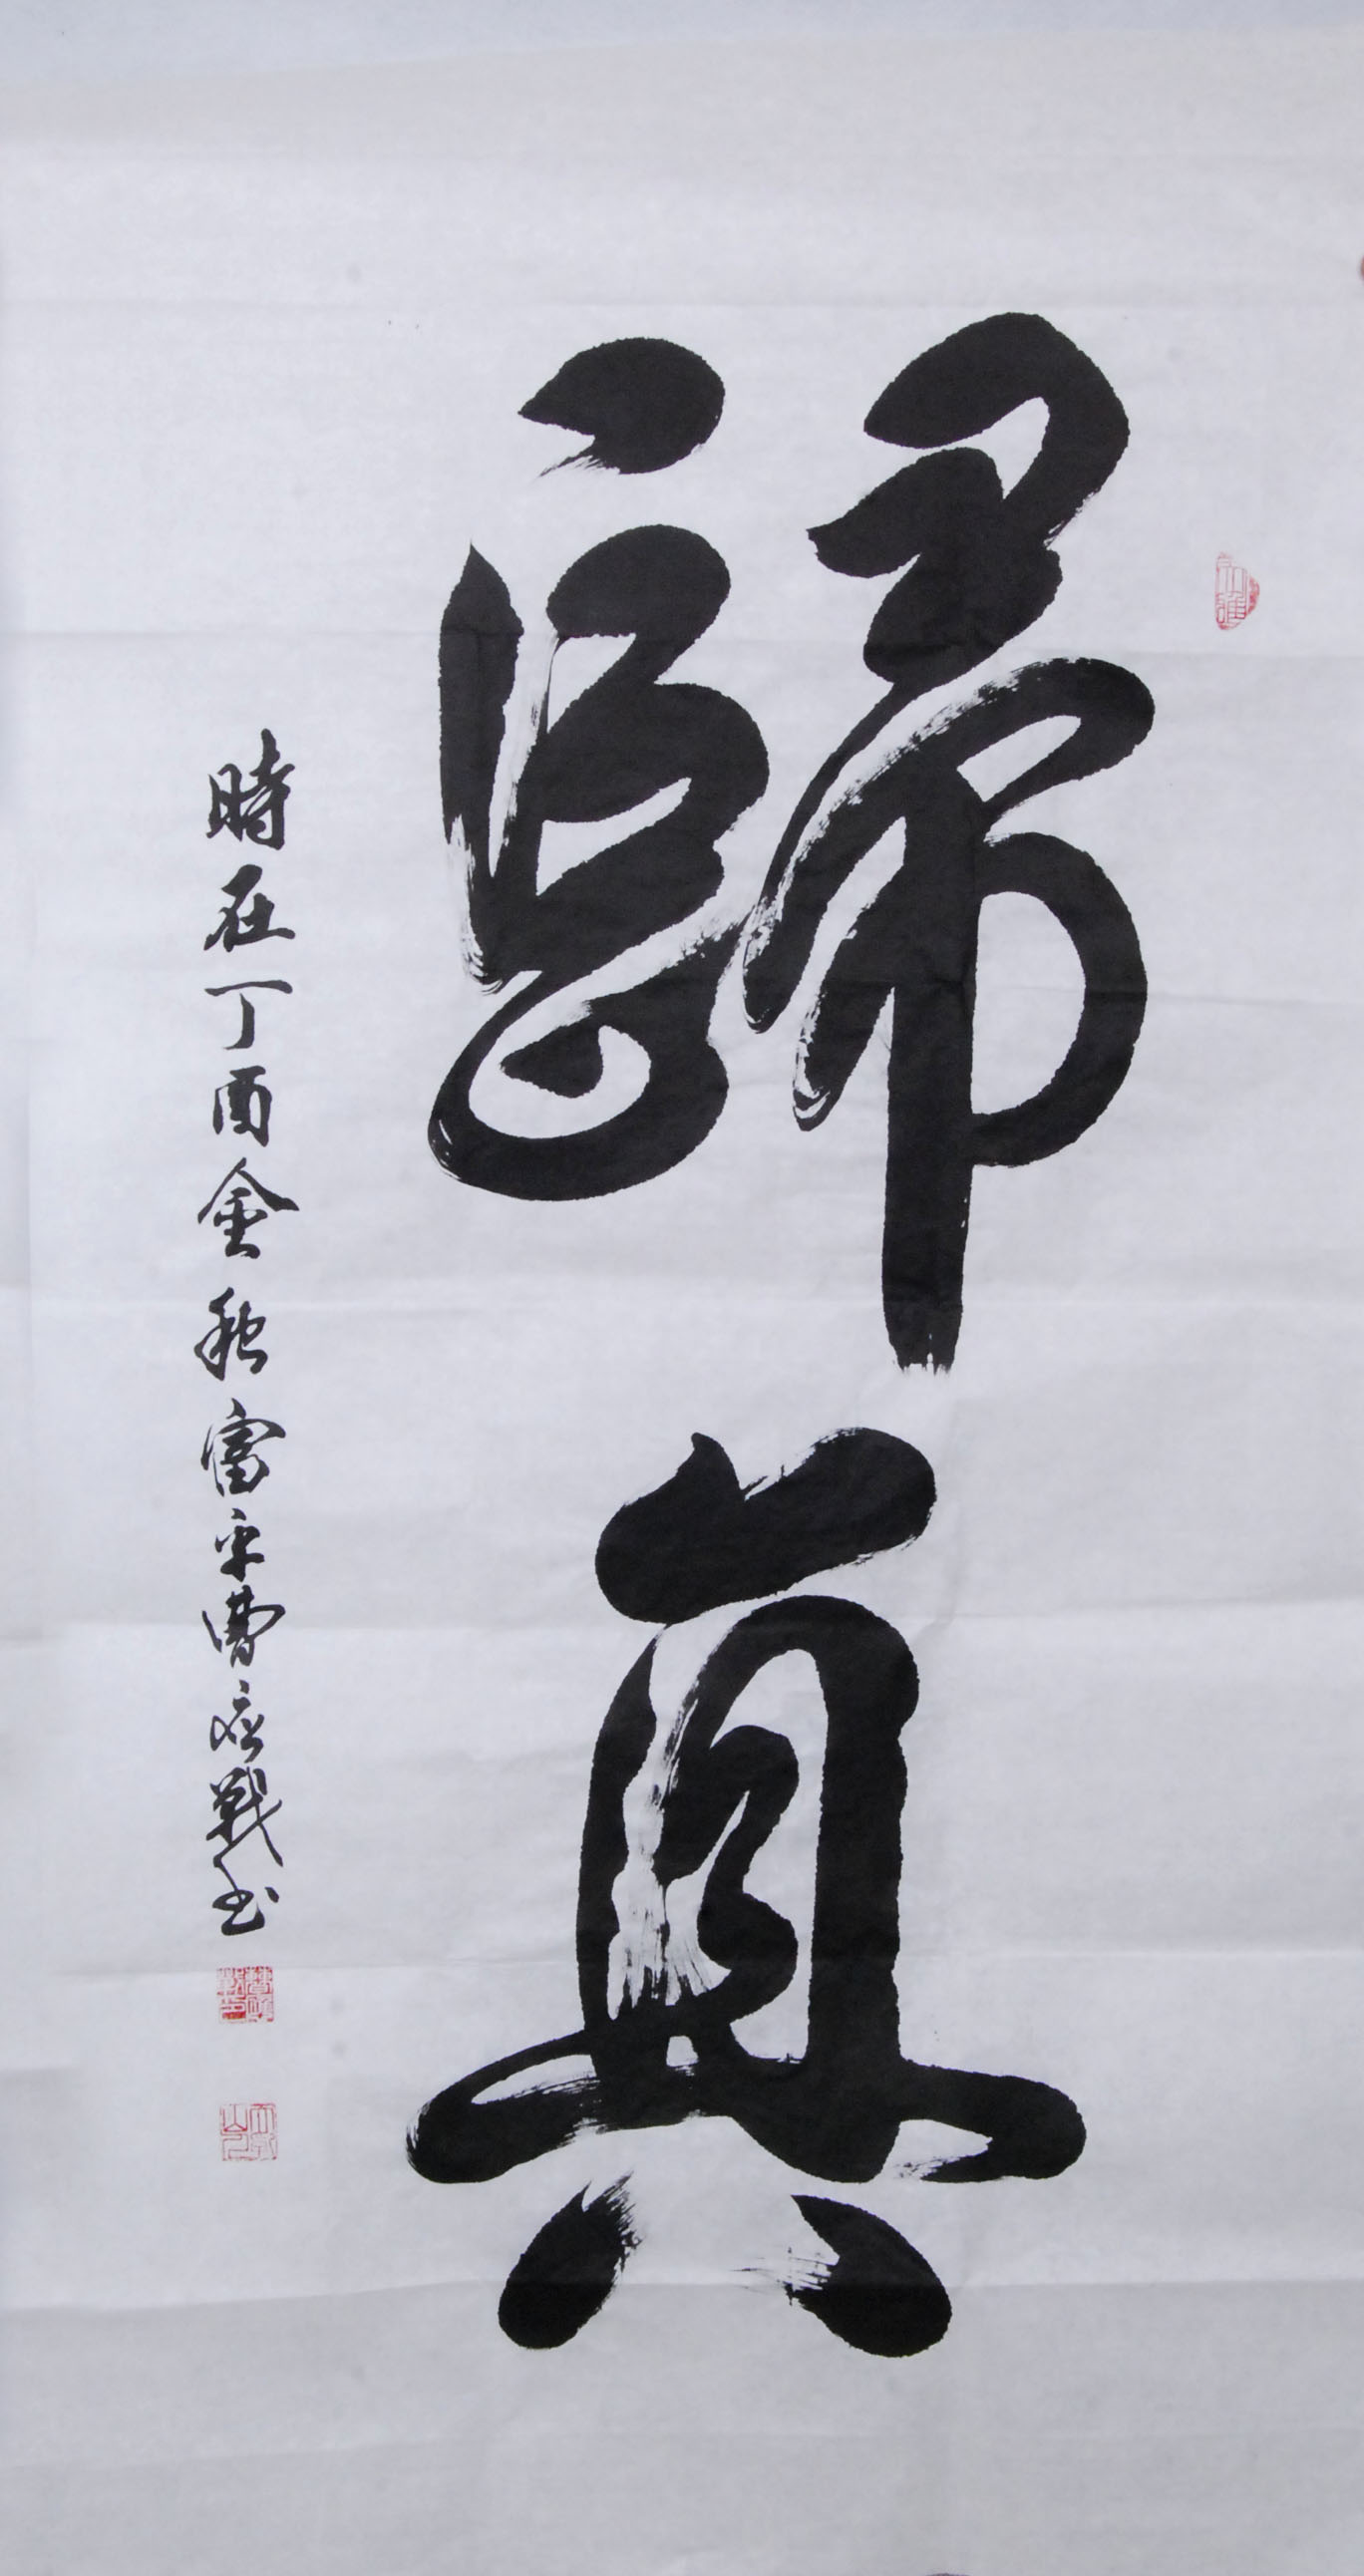 歸真
時在丁酉金秋富平曹應戰書